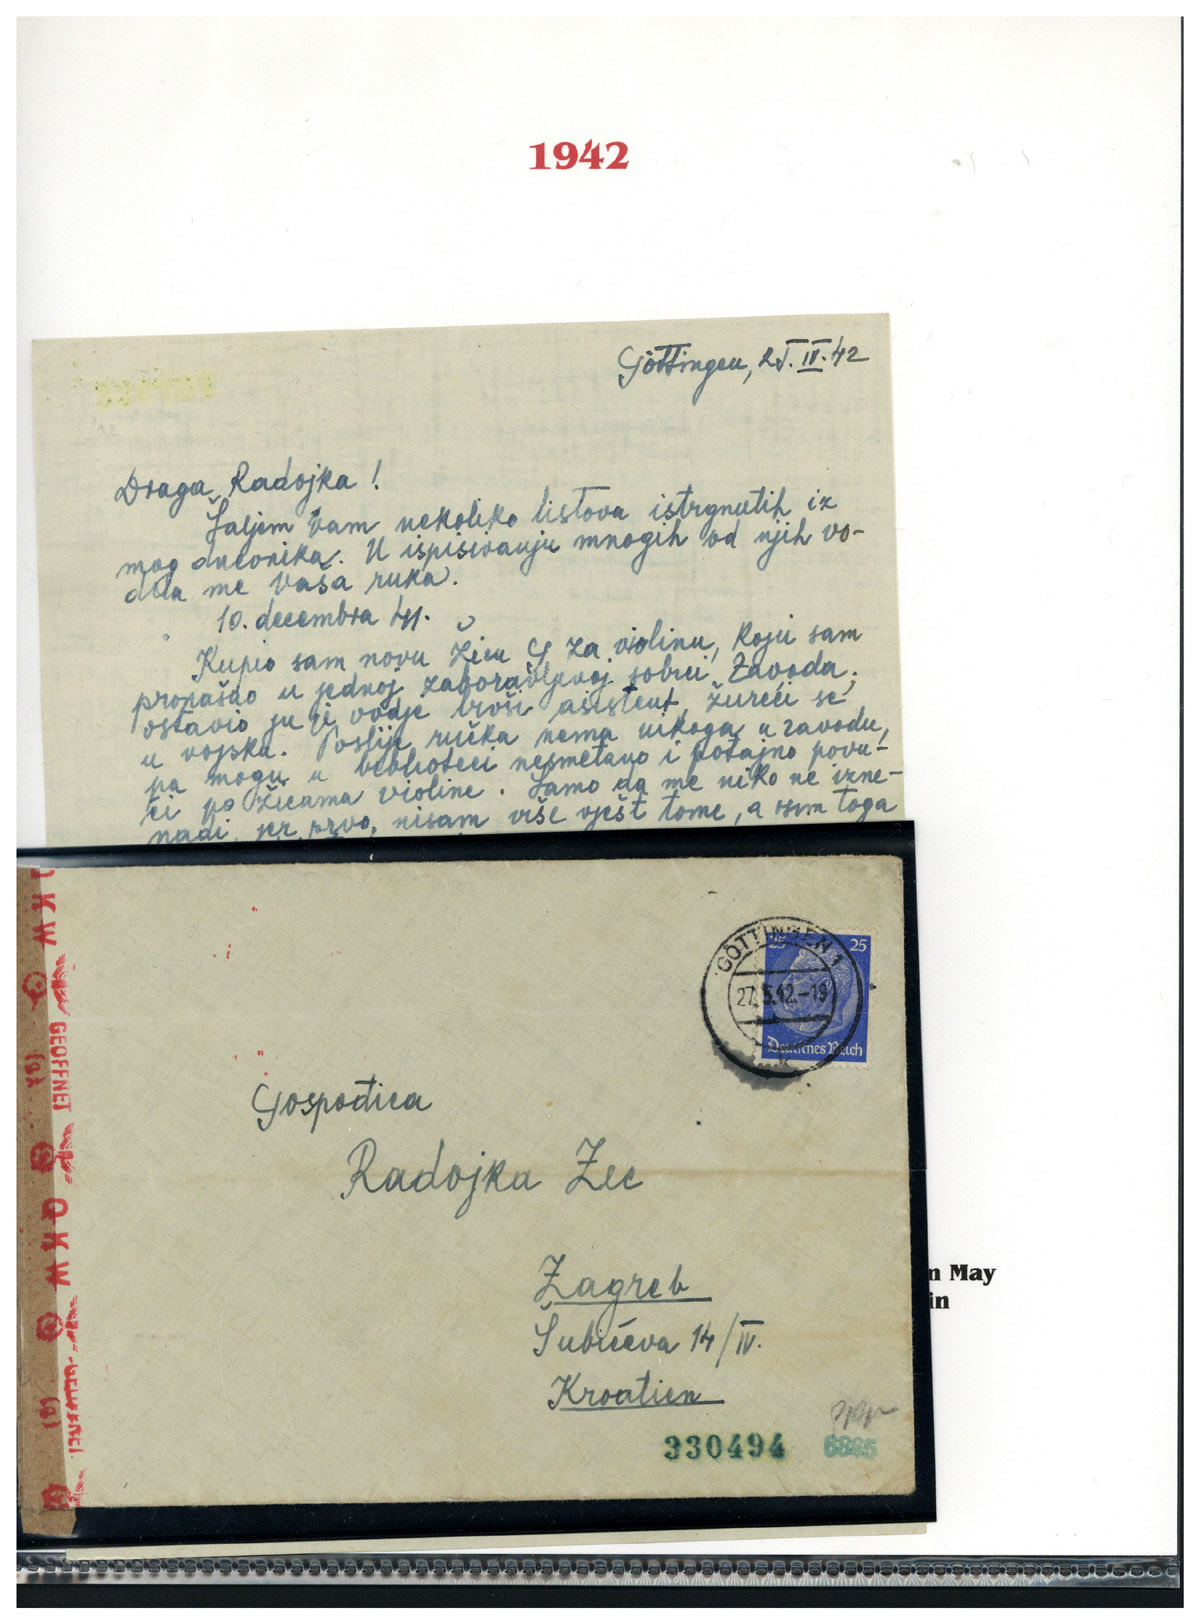 1942
Göttingen, 25. IV. 42
Draga Radojka!
Šaljem Vam nekoliko listova istrgnutih iz
mog dnevnika. U ispisivanju mnogih od njih vo-
dila me Vaša ruka.
10. decembra 41.
Kupio sam novu žicu G za violinu, koju sam
pronašao u jednoj zaboravljenoj sobici Zavoda;
ostavio ju je ovdje bivši asistent, žureći se
u vojsku. Poslije ručka nema nikoga u zavodu,
pa mogu u biblioteci nesmetano i potajno povu-
ći po žicama violine. Samo da me niko ne izne-
nadi, jer prvo, nisam više vješt tome, a osim toga
GÖTTINGEN 1
27.5.42.-19
k
25 25
Deutsches Reich
OKW
GEÖFFNET
(g)
OKW
(g)
Gospođica
Radojka Zec
Zagreb
Šubićeva 14/IV.
Kroatien
330494
6885
m May
in